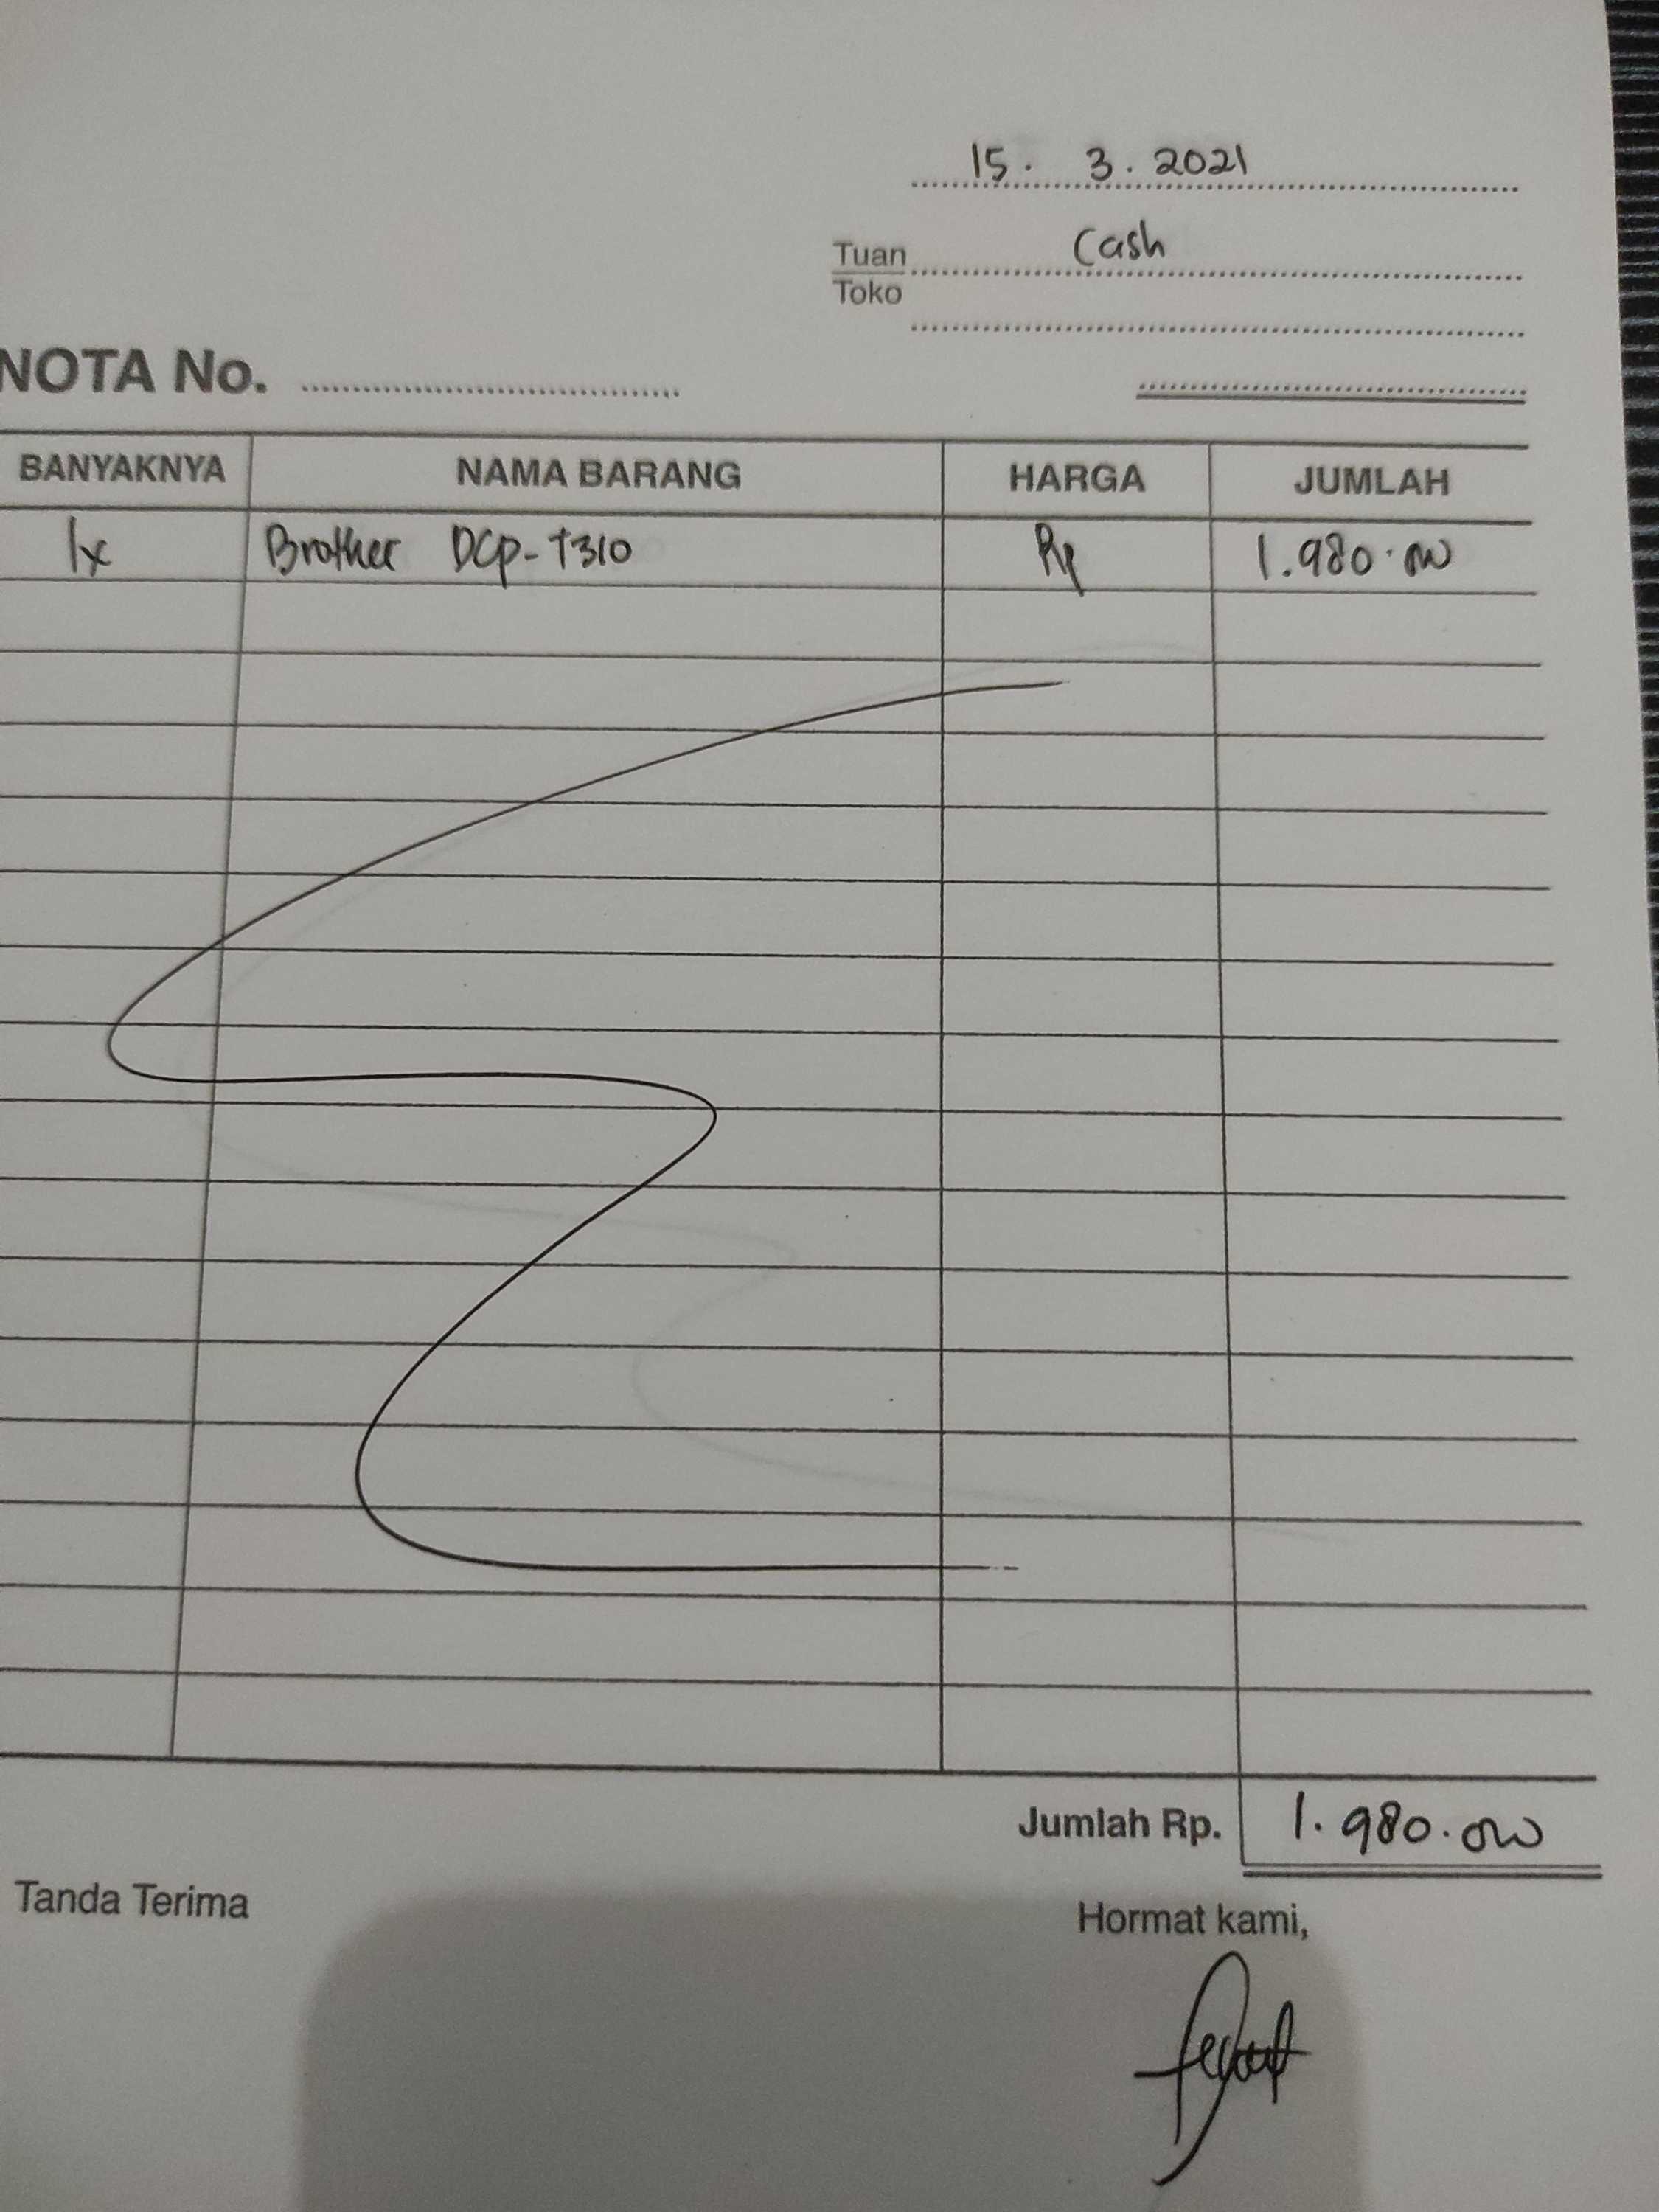 15. 3. 2021
Tuan Cash
Toko
NOTA No.
BANYAKNYA NAMA BARANG HARGA JUMLAH
1x Brother DCP-T310 Rp 1.980.000
Jumlah Rp. 1.980.000
Tanda Terima Hormat kami,